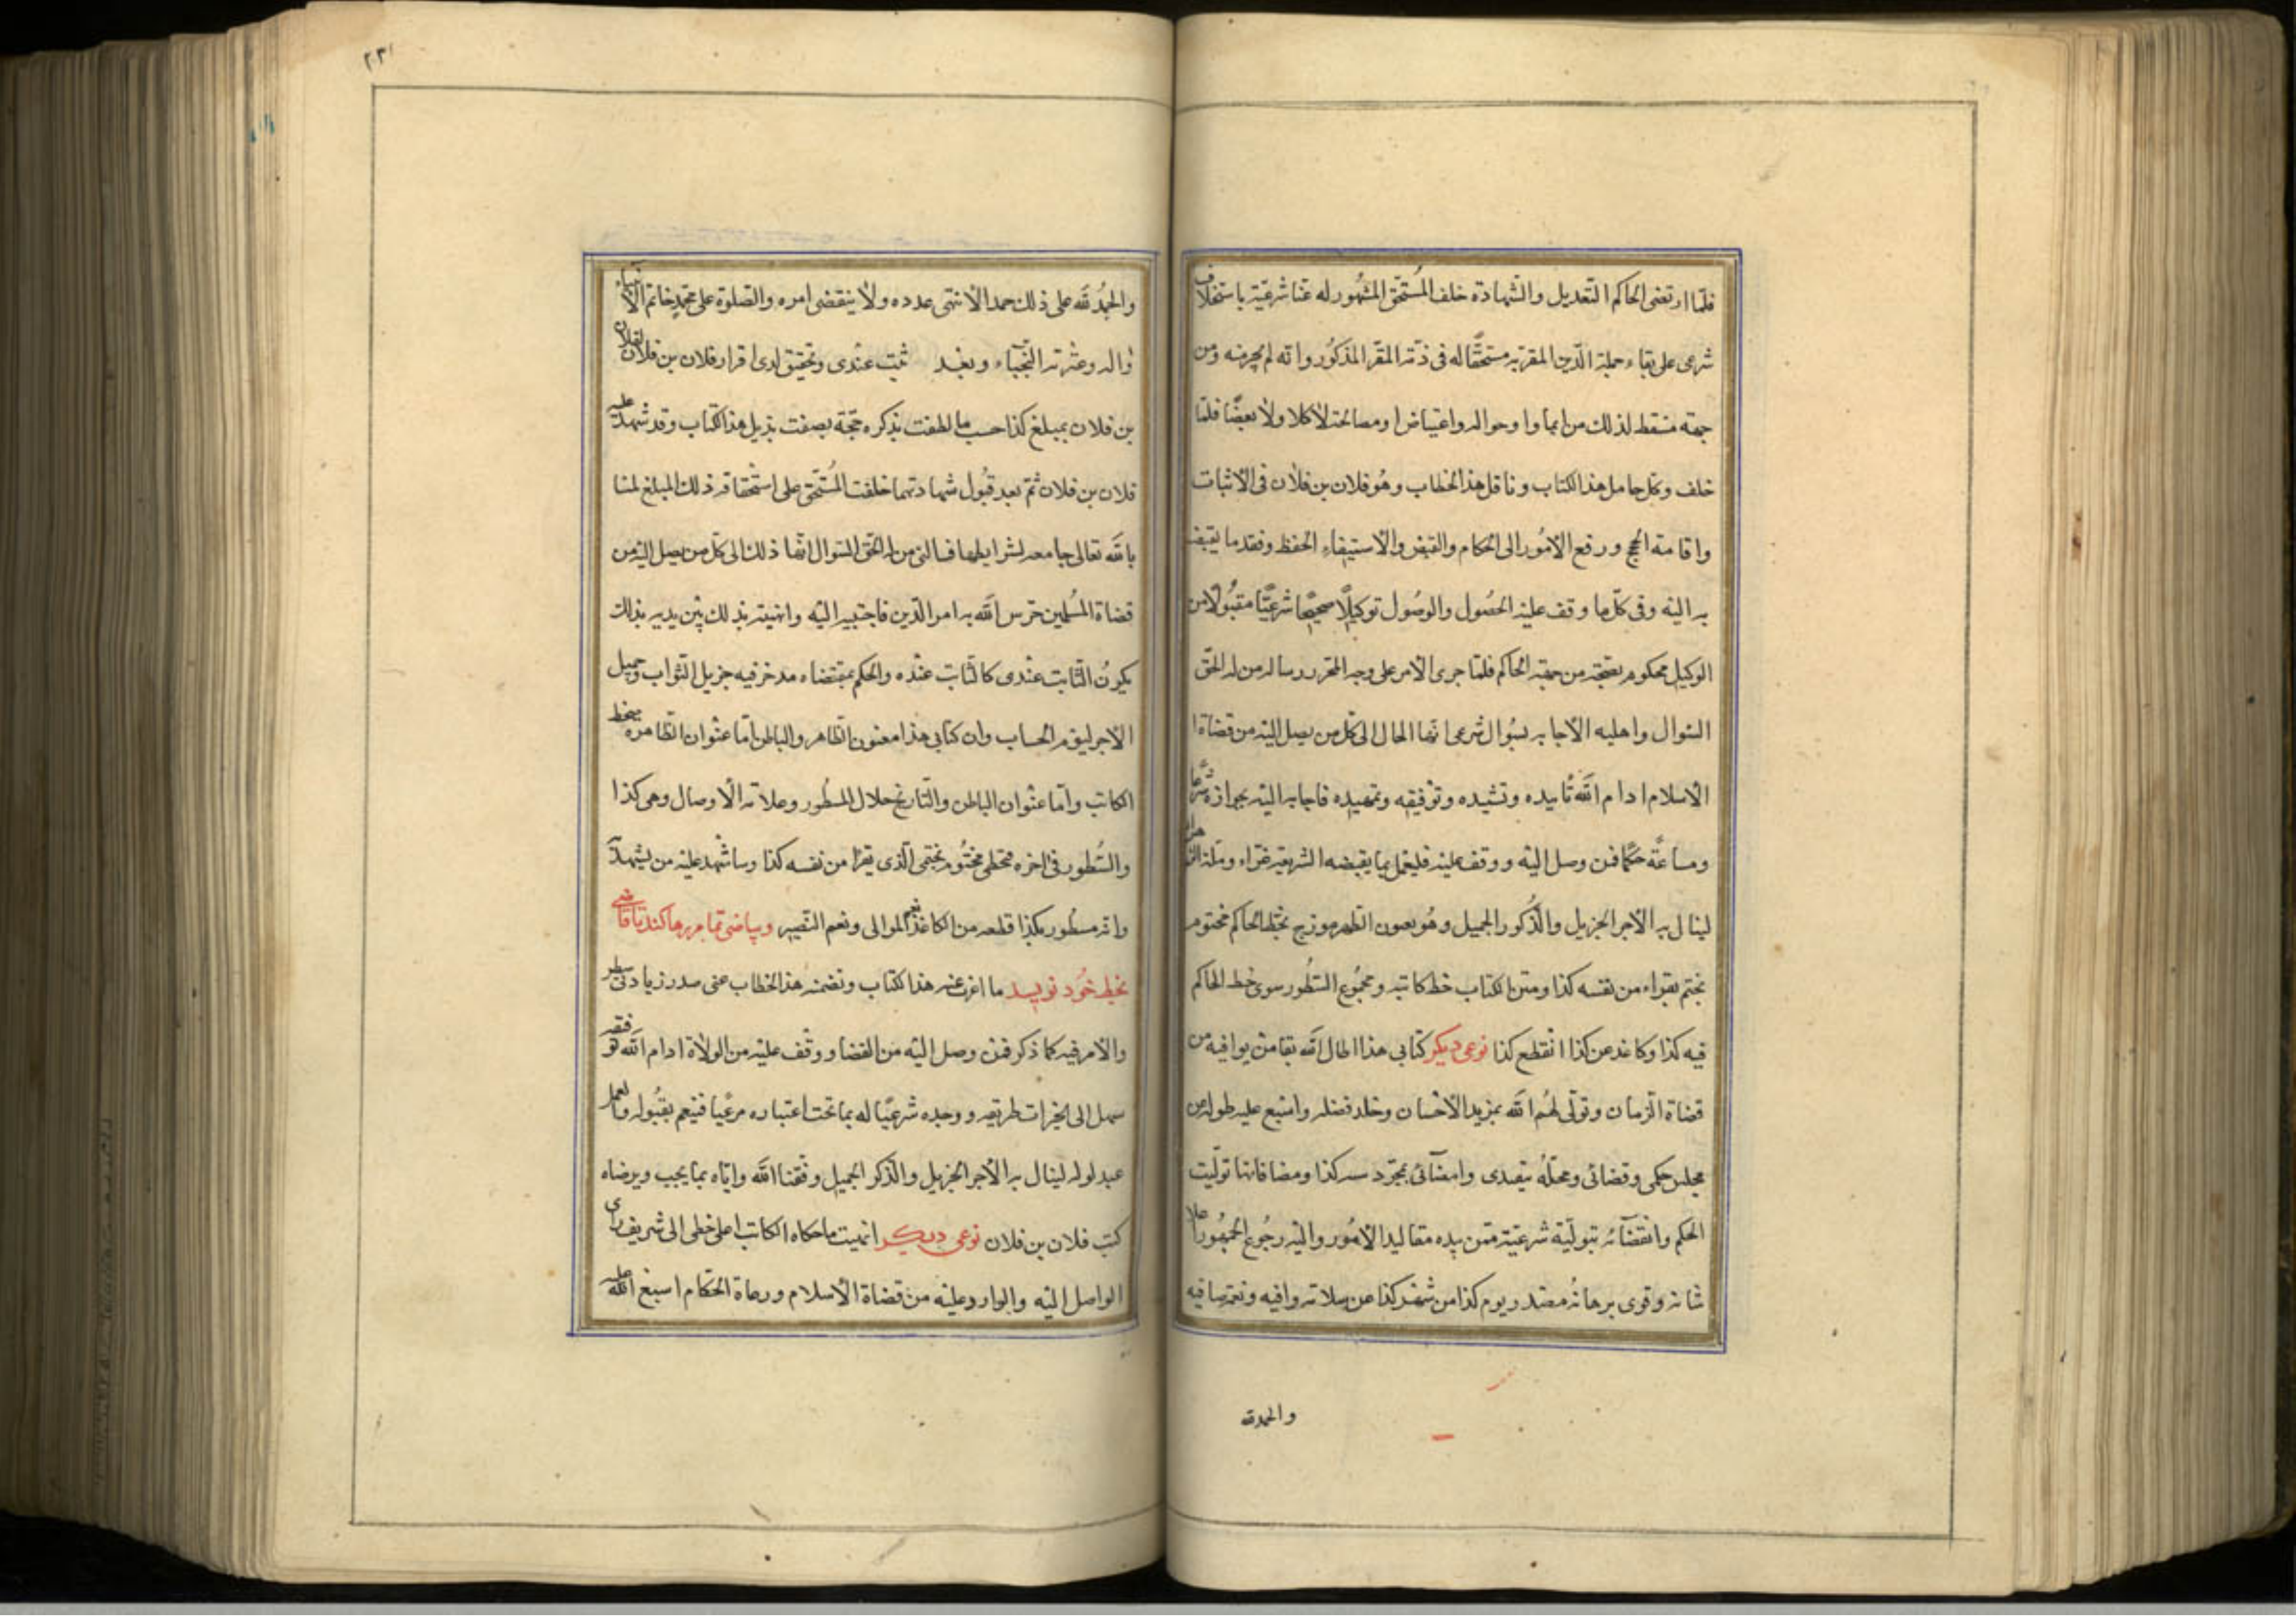 فلما ارتضى الحاكم التعديل والشهادة خلف المستحق المشهور له عنا شرعية باستخلاف
شرعى على بقاء جملة الدين المقر به مستحقا له فى ذمة المقر المذكور وانه لم يجر منه ومن
جهته مسقط لذلك من ابراء او حواله واعتياض او مصالحة لا كلا ولا بعضا فلما
خلف وكل حامل هذا الكتاب وناقل هذ الخطاب وهو فلان بن فلان فى الاثبات
واقامة الحج ورفع الامور الى الحكام والقبض والاستيفاء الحفظ وفقد ما يقبض
به اليه وفى كل ما وقف عليه الحصول والوصول توكيلا صحيحا شرعيا مقبولا من
الوكيل محكوم بصحته من جهة الحاكم فلما جرى الامر على وجه المحرر رساله من له الحق
السوال واهليه الاجابه بسوال شرعى انها الحال الى كل من يصل اليه من قضاة ا
الاسلام ادام الله تاييده وتشيده وتوفيقه وتمهيده فاجابه اليه بجوازه شرعا
ومساغه حكما فمن وصل اليه ووقف عليه فليعمل بما يقبضه الشريعة غراء وملة
لينال به الاجر الجزيل والذكور الجميل وهو بعون الظهر موزج بخط الحاكم مختوم
بختم يقراء من نفسه كذا ومتن الكتاب خط كاتبه ومجموع السطور سوى خط الحاكم
فيه كذا وكاغد عن كذا انقطع كذا نوعى ديكر كتابى هذا اطال الله بقا من يوافيه من
قضاة الزمان وتولى لهم الله بمزيد الاحسان وخلد فضله واسبع عليه طوله من
مجلس حكمى وقضائى ومحله يقصدى وامضائى بمجرد سه كذا ومضافاتها توليت
الحكم وانقضائه بتولية شرعية ممن بيده مقاليد الامور واليه رجوع الجمهور اعلا
شانه وقوى برهانه مصدر يوم كذا من شهر كذا عن سلامة وافيه ونعم صافيه
والحمد لله
٢٣١
والحمد لله على ذلك حمدا لا انتهى عدده ولا ينقضى امره والصلوة على محمد خاتم الانبياء
واله وعترته النجباء وبعد ثبت عندى وتحقيق لدى اقرار فلان بن فلان لفلان
بن فلان بمبلغ كذا حسب ما لطفت بذكره حجة بصفت بذيل هذ الكتاب وقد شهد عليه
فلان بن فلان ثم بعد قبول شهادتهما خلفت المستحق على استحقاقه ذلك المبلغ لمنا
بالله تعالى جامعه لشرايطها فسالنى من له الحق السوال انها ذلك الى كل من يصل اليه من
قضاة المسلمين حرس الله به امر الدين فاجتبيه اليه وانهيته بذلك بين يديه بذلك
يكون الثابت عندى كالثابت عنده والحكم بمقتضاه مدخر فيه جزيل الثواب وجميل
الاجر ليوم الحساب وان كتابى هذا معنون الظاهر والباطن اما عنوان الظاهره بخط
الكاتب واما عنوان الباطن والتاريخ خلال السطور وعلامة الاوصال وهى كذا
والسطور فى اخره بخطى مختوم بختمى الذى يقرا من نفسه كذا وساشهد عليه من يشهد
وانه مسطور بكذا قطعه من الكاغذ نعم الموالى ونعم النصير وبياضى تمام برهاكند تا قاضى
بخط خود نويسد ما اعرب عنه هذا لكتاب وتضمنه هذ الخطاب عنى صدر زيادتى سطر
والامر فيه كما ذكر فمن وصل اليه من القضا ووقف عليه من الولاة ادام الله توفقه
سهل الى الخيرات طريقه ووجده شرعيا له بما تحت اعتباره مرعيا فينعم بقبوله والعمل
عبدلوله لينال به الاجر الجزيل والذكر الجميل وفقنا الله واياه بما يجب ويرضاه
كتب فلان بن فلان نوعى ديكر انهيت ما حكاه الكاتب اعلى خطى الى شريف راى
الواصل اليه والوارد عليه من قضاة الاسلام ورعاة الحكام اسبغ الله عليه